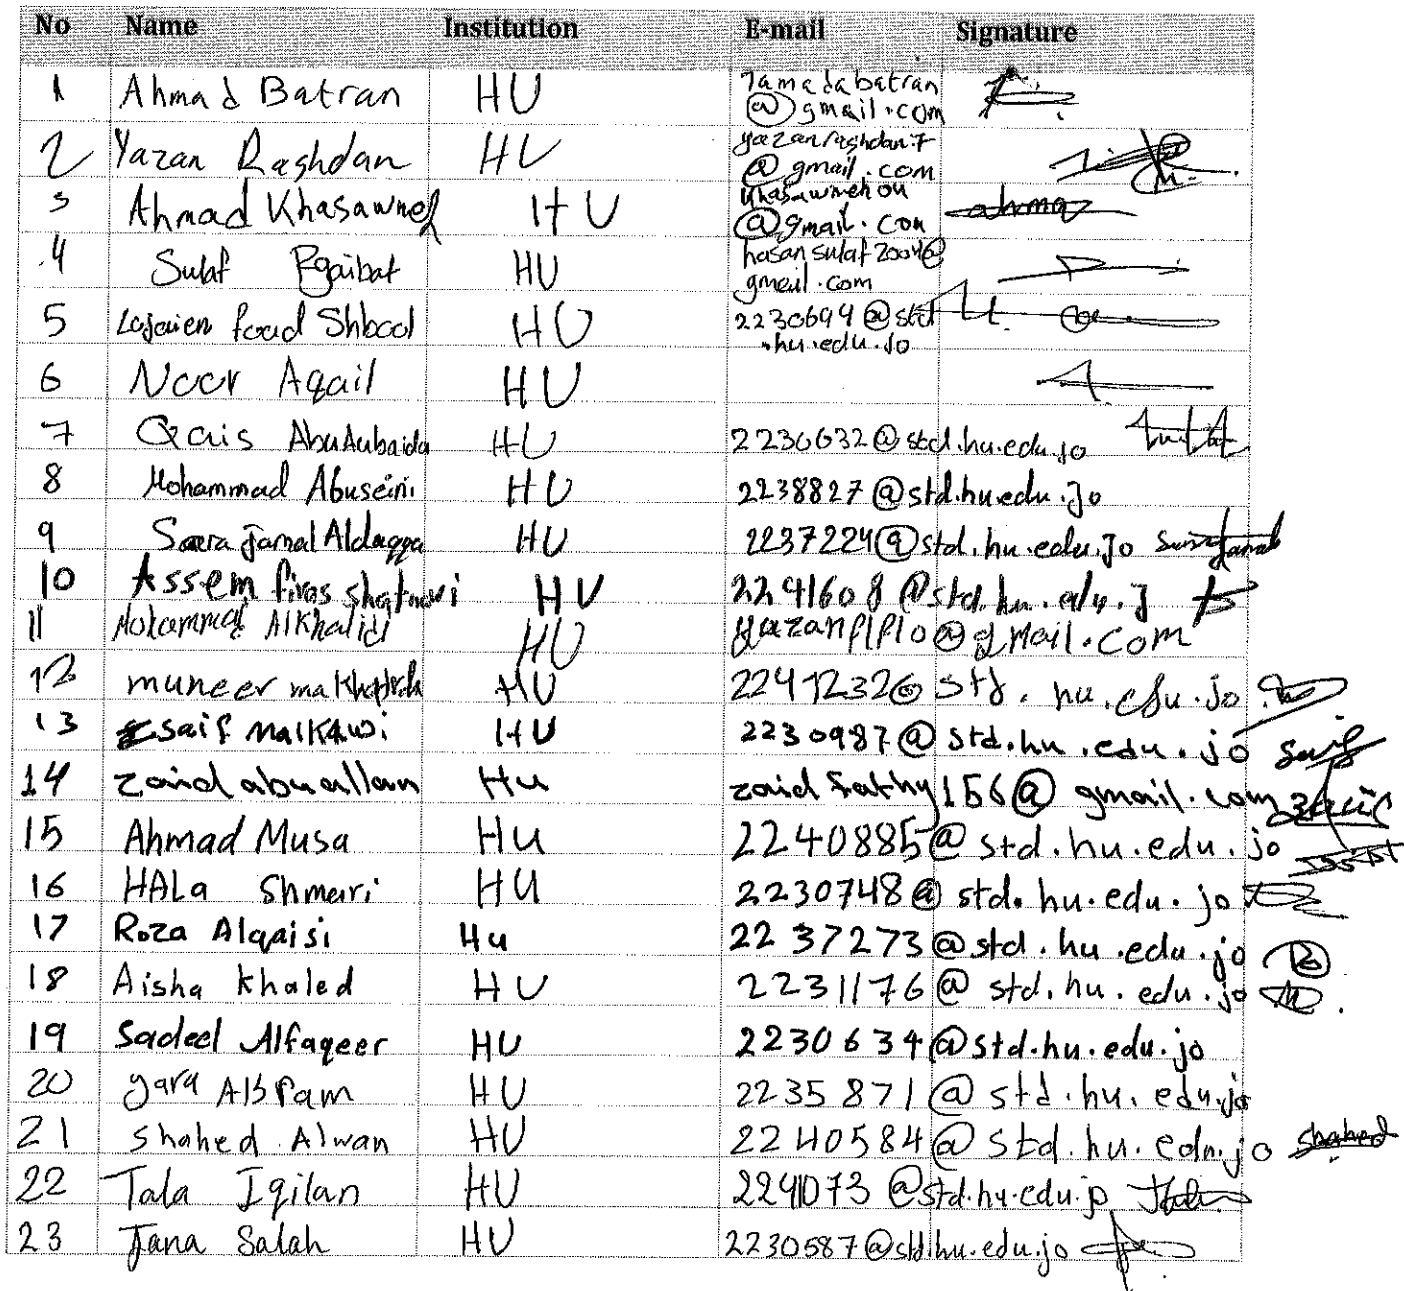 No Name Institution E-mail Signature
1 Ahmad Batran HU 7amadabatran
@gmail.com
2 Yazan Rashdan HU yazanrashdan7
@gmail.com
3 Ahmad Khasawneh HU khasawnehou
@gmail.com ahma
4 Sulaf HU hasansulaf2004@
gmail.com
5 foad Shbool HU 2230694@std
.hu.edu.jo
6 Noor Aqail HU
7 Qais AbuAubaida HU 2230632@std.hu.edu.jo
8 Mohammad Abuseini HU 2238827@std.hu.edu.jo
9 Jamal Aldaqqa HU 2237224@std.hu.edu.jo
10 Assem firas shatnawi HU 2241608@std.hu.edu.j
11 Mohammad AlKhalidi HU
12 muneer HU 2241232@std.hu.edu.jo
13 saif malkawi HU 2230987@std.hu.edu.jo saif
14 zaid abuallan Hu zaidfathy156@gmail.com
15 Ahmad Musa Hu 2240885@std.hu.edu.jo
16 HALa Shmari HU 2230748@std.hu.edu.jo
17 Roza Alqaisi Hu 2237273@std.hu.edu.jo
18 Aisha Khaled HU 2231176@std.hu.edu.jo
19 Sadeel Alfaqeer HU 2230634@std.hu.edu.jo
20 yara HU 2235871@std.hu.edu.jo
21 Shahed Alwan HU 2240584@std.hu.edu.jo shahed
22 Tala Iqilan HU 2241073@std.hu.edu.jo
23 Jana Salah HU 2230587@std.hu.edu.jo